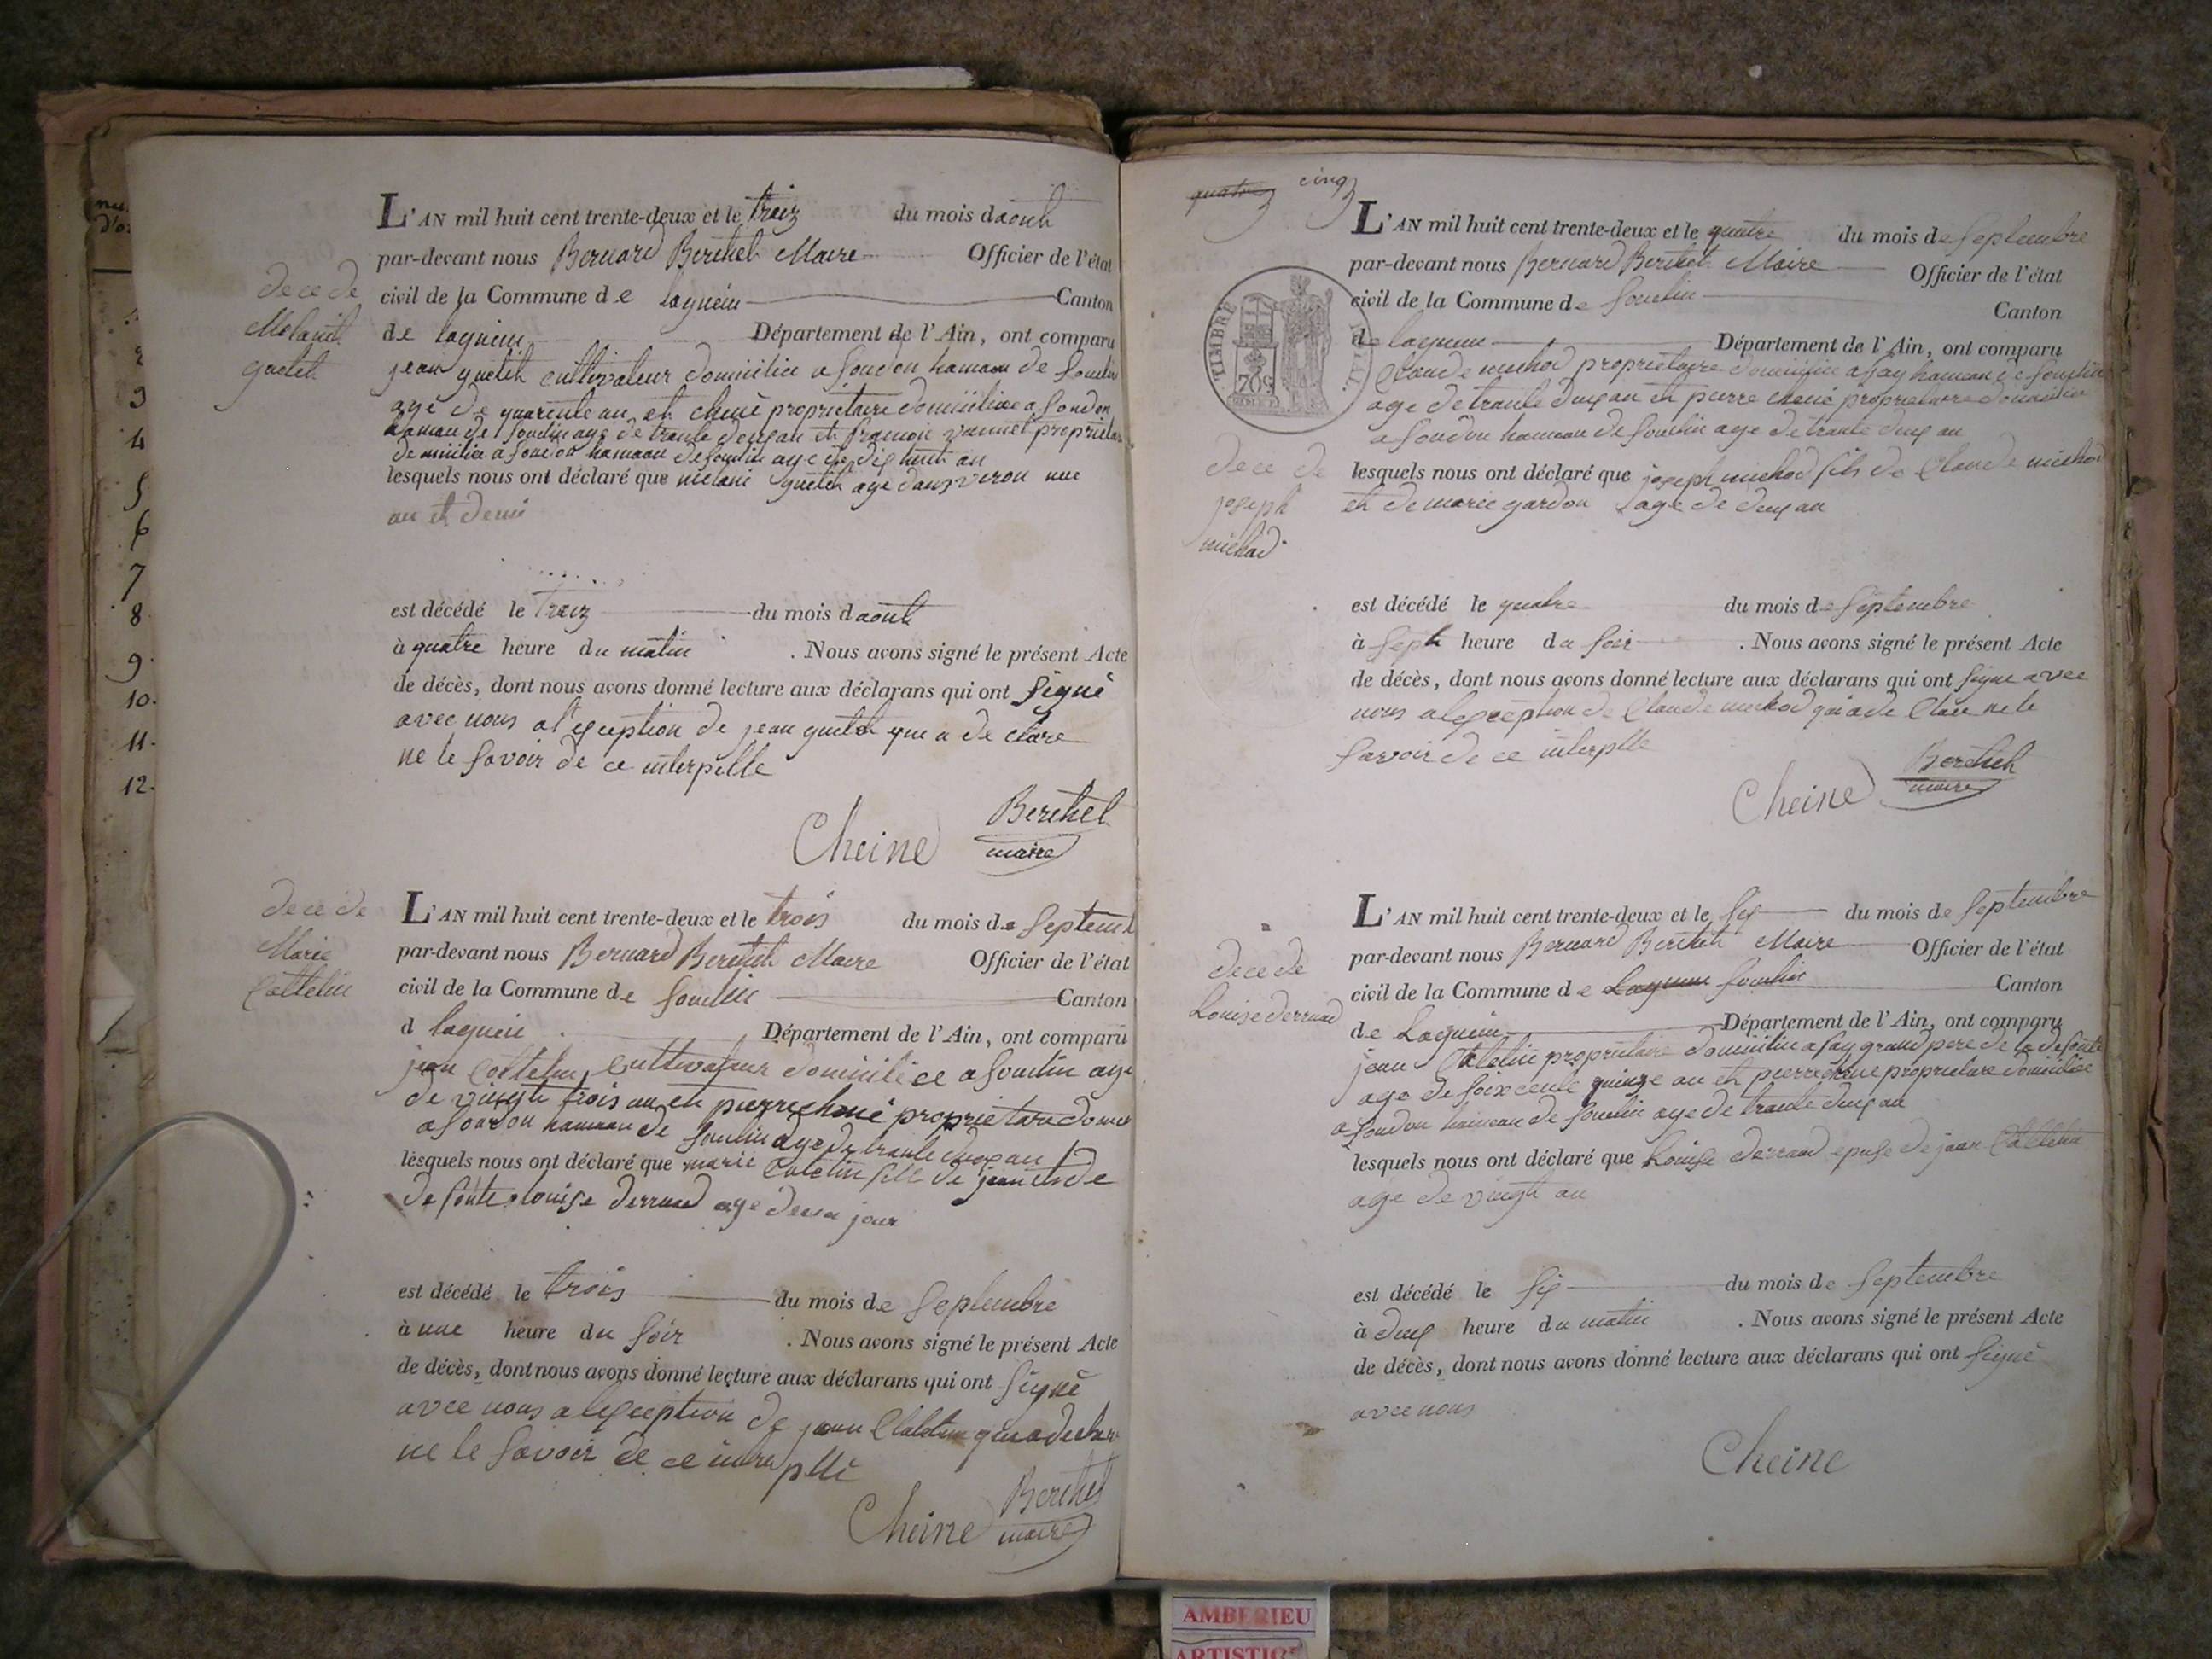 nu
d'or
2
3
4
5
6
7
8
9
10.
11.
12.
L'AN mil huit cent trente-deux et le treiz du mois daouth
par-devant nous Bernard Berthet Maire Officier de l'état
civil de la Commune de lagnieu Canton
de lagnieu Département de l'Ain, ont comparu
jean guetet cultivateur domicilie a soudon hamau de souclin
age de quarente an et chene propriétaire domicilie a soudon
hamau de souclin age de trante deuxan et framcois vannet proprietair
domicilie a soudon hamaau de souclin age de dix huit an
lesquels nous ont déclaré que melani guetet age danvirou une
an et demi
dece de
Melani
guetet
est décédé le treiz du mois daouth
à quatre heure du matin . Nous avons signé le présent Acte
de décès, dont nous avons donné lecture aux déclarans qui ont signé
avec nous a l'exception de jean guetet que a de clare
ne le savoir de ce interpelle
Berthet
Cheine maire
dece de
Marie
Cottelin
L'AN mil huit cent trente-deux et le trois du mois de septemb
par-devant nous Bernard Berthet Maire Officier de l'état
civil de la Commune de souclin Canton
d lagnieu Département de l'Ain, ont comparu
jean Cottelin Cultivateur domicilice a souclin age
de vingth trois an et pierre chené proprietare domic
a soudon hamaau de souclin age de trante deux an
lesquels nous ont déclaré que marie Catelin fille de jean et de
defunte louise derrud age deun jour
est décédé le trois du mois de septembre
à une heure du soir . Nous avons signé le présent Acte
de décès, dont nous avons donné lecture aux déclarans qui ont signé
avec nous alexception de jean Catelin qui a declar
ne le savoir de ce
Berthet
Cheine maire
quatre cinq
L'AN mil huit cent trente-deux et le quatre du mois de septembre
par-devant nous Bernard Berthet Maire Officier de l'état
civil de la Commune de souclin
Canton
de lagnieu Département de l'Ain, ont comparu
Claude michod proprietaire domicilie a fay hameau de souclin
age detrante deuxan et pierre chené proprietaire domicilie
a soudon hameau de souclin age de trante deux an
lesquels nous ont déclaré que joseph michod fils de Claude michod
et de marie gardon age de deux an
TIMBRE
dece de
joseph
michod
est décédé le quatre du mois de septembre
à sept heure du soir . Nous avons signé le présent Acte
de décès, dont nous avons donné lecture aux déclarans qui ont signe avec
nous alexception de Claude michod qui a de Clare ne le
savoir de ce interplle
Berthet
Cheine maire
L'AN mil huit cent trente-deux et le six du mois de septembre
par-devant nous Bernard Berthet Maire Officier de l'état
civil de la Commune de Lagnieu souclin Canton
de Lagnieu Département de l'Ain, ont comparu
jean Catelin propriétaire domicilie a fay grand pere de la defunte
age de soixcente quinze an et pierre chene proprietare domicilie
a soudon hameau de souclin age de trante deux an
lesquels nous ont déclaré que Louise derraud epuse de jean Cattelin
age de vingt an
dece de
Louise derruad
est décédé le six du mois de septembre
à deux heure du matin . Nous avons signé le présent Acte
de décès, dont nous avons donné lecture aux déclarans qui ont signé
avec nous
Cheine
AMBERIEU
ARTISTIC